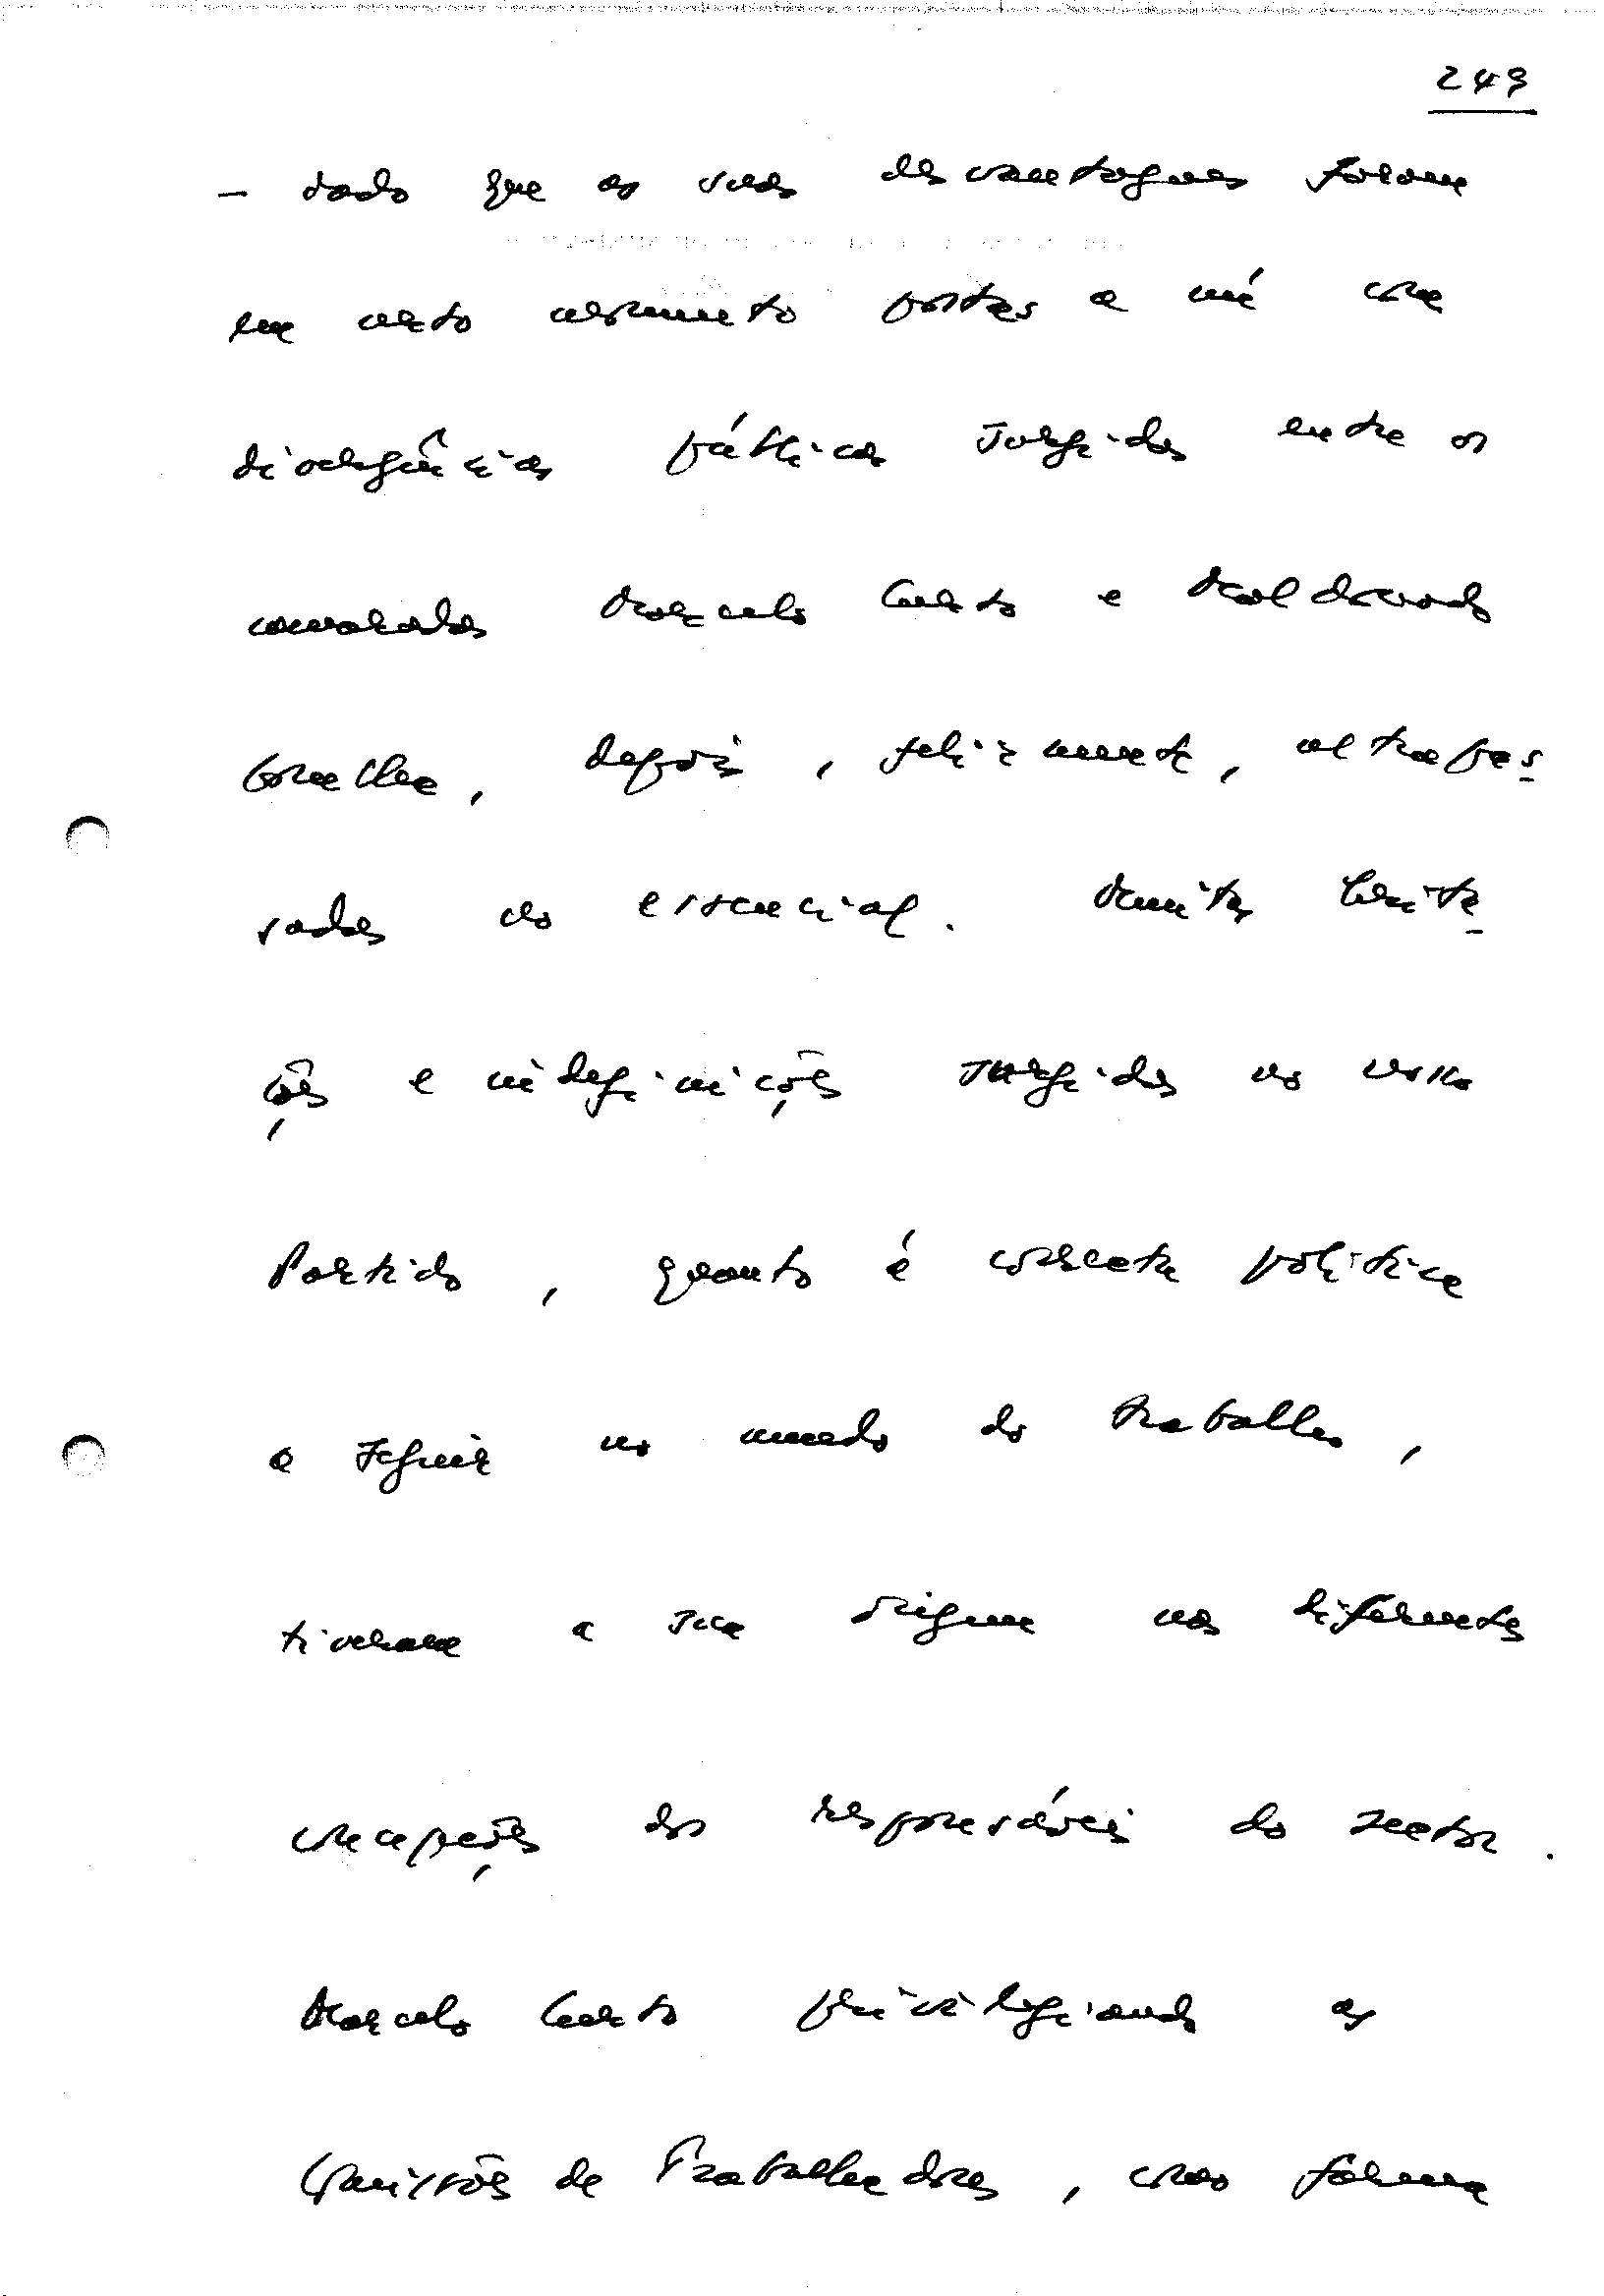 249
- dado que as suas desvantagens foram
em certo momento postas a nú com
divergências públicas surgidas entre os
camaradas Marcelo Curto e Maldonado
Gonelha, depois, felizmente, ultrapas-
sadas no essencial. Muitas hesita-
ções e indefinições surgidas no nosso
Partido, quanto à correcta política
a seguir no mundo do trabalho,
tiveram a sua origem nas diferentes
concepções dos responsáveis do sector.
Marcelo Curto privilegiando as
Comissões de Trabalhadores, como forma